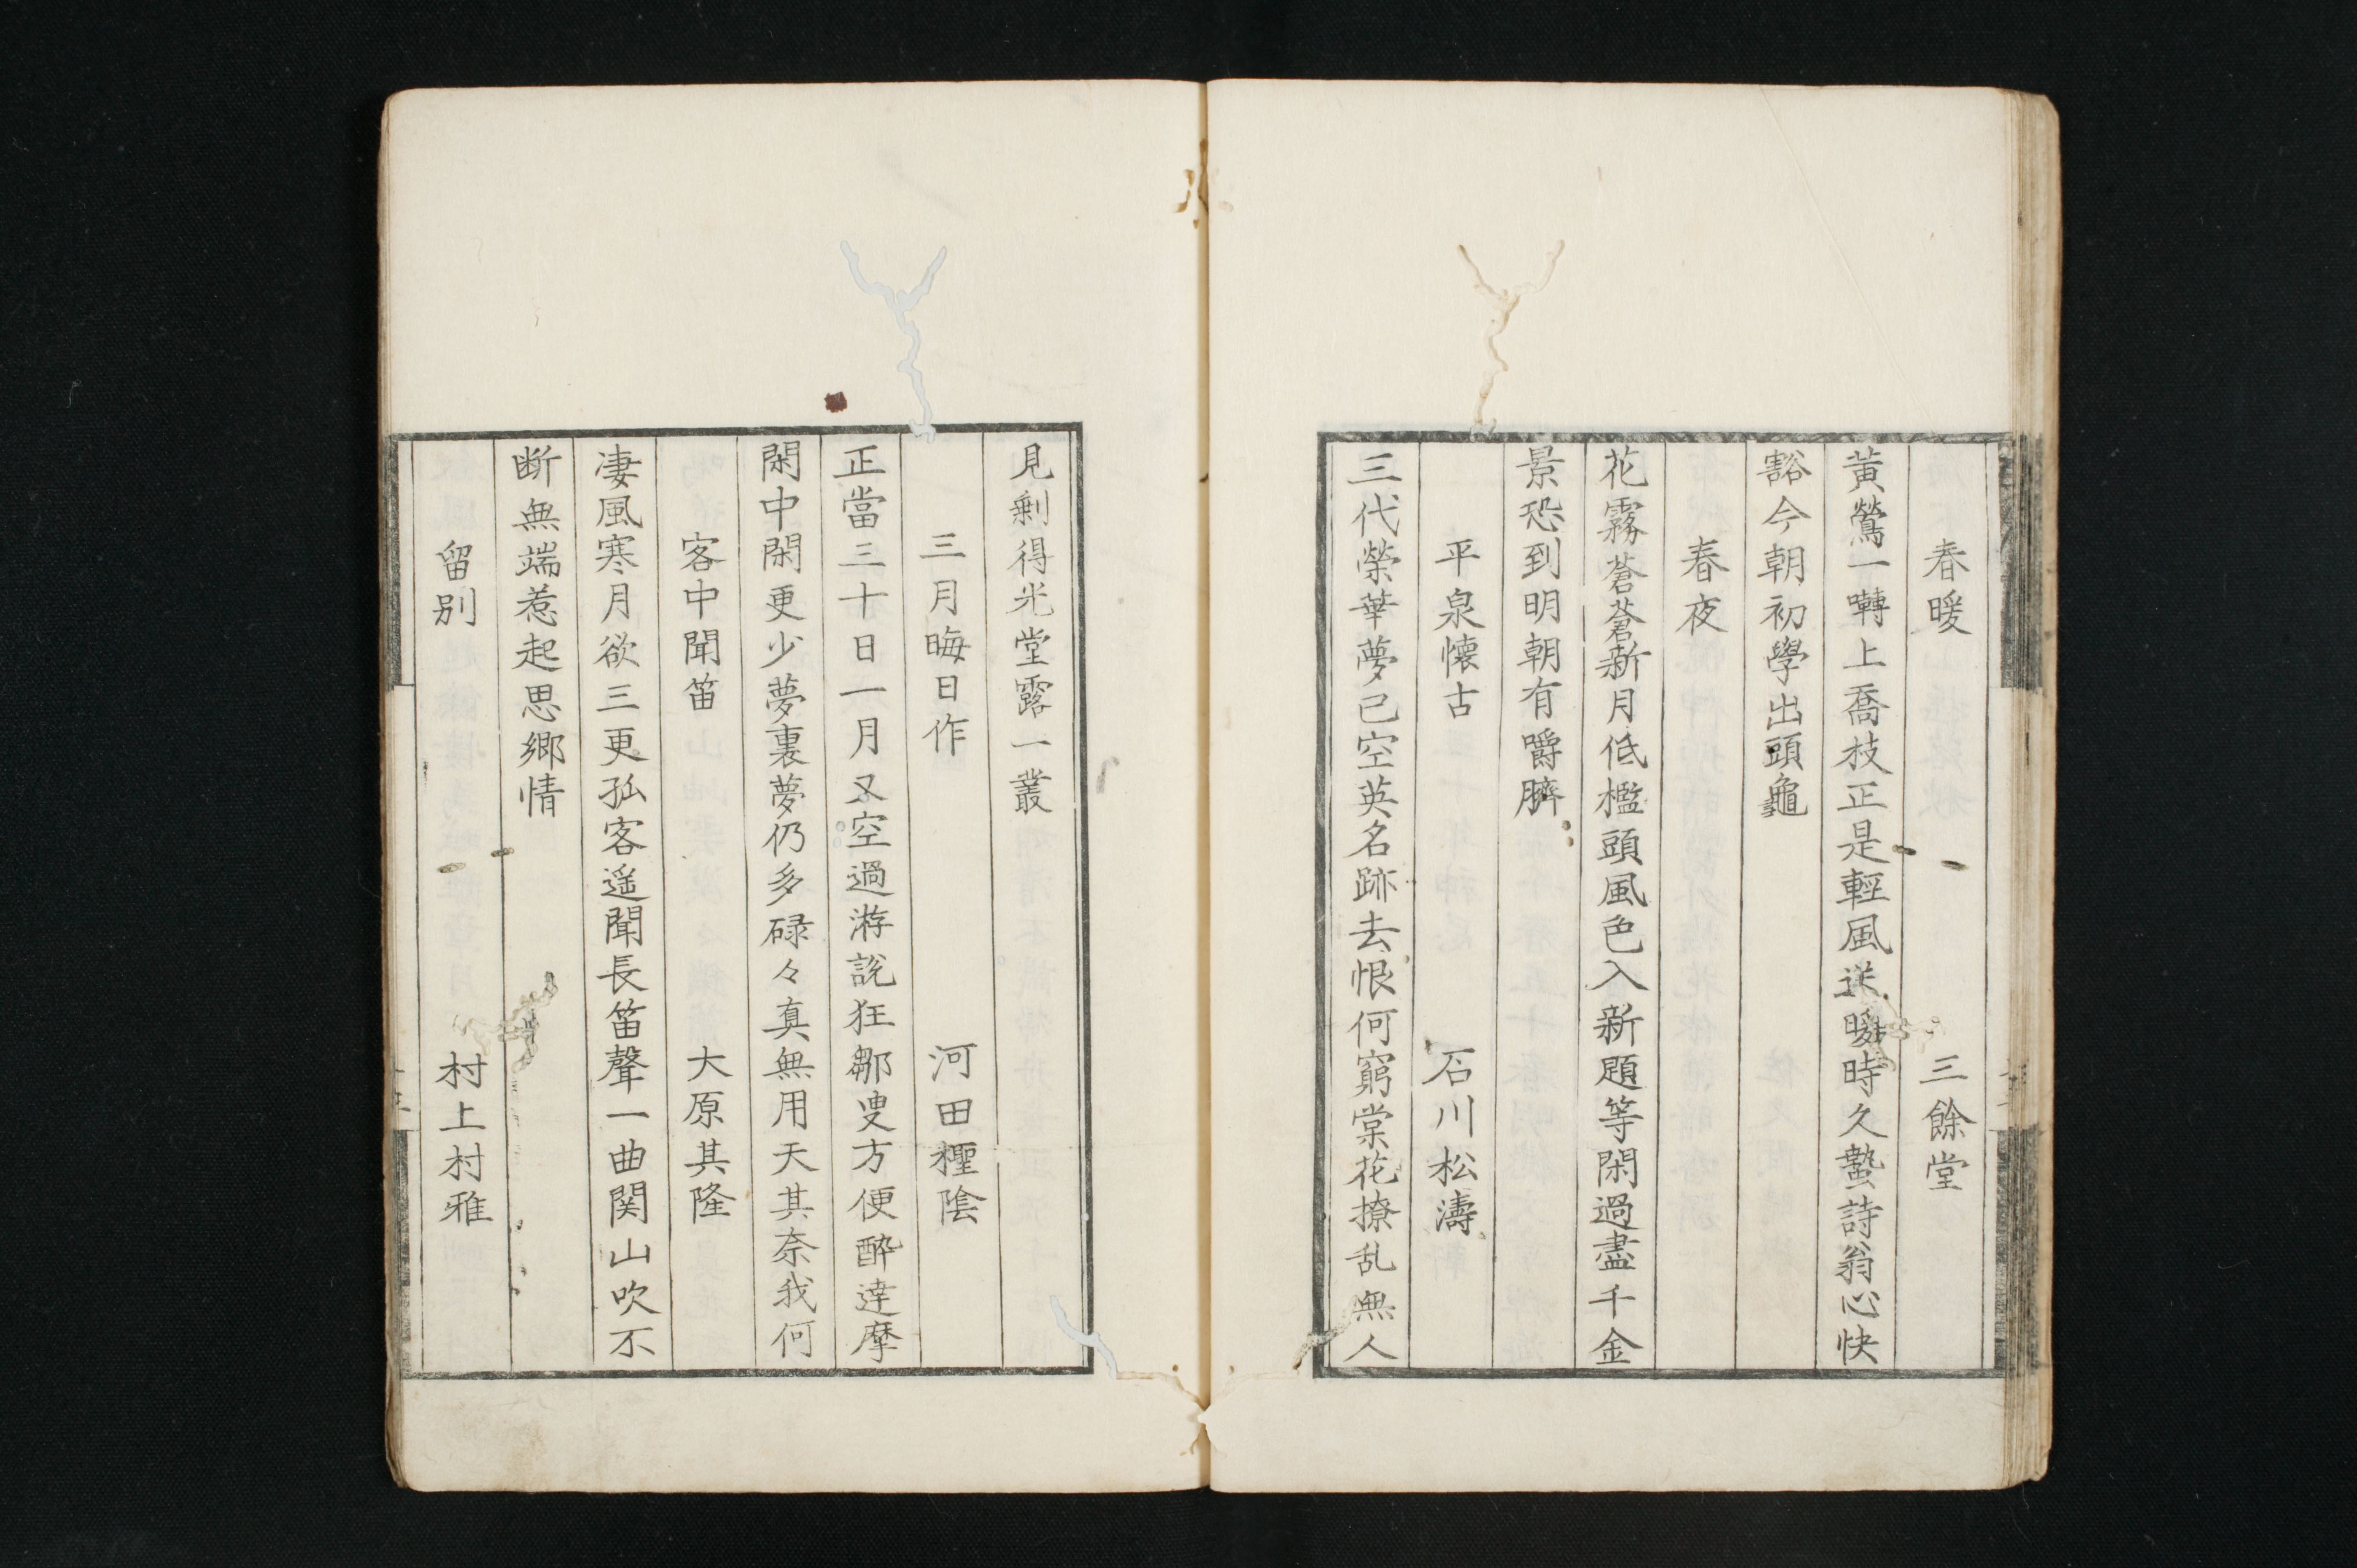 春暖　三餘堂
黄鶯一囀上喬枝正是輕風送暖時久蟄詩翁心快
豁今朝初學出頭龜
春夜
花霧蒼蒼新月低檻頭風色入新題等閑過盡千金
景恐到明朝有嚼臍
平泉懐古　石川松濤
三代榮華夢已空英名跡去恨何窮棠花撩乱無人
見剰得光堂露一叢
三月晦日作　河田陰
正當三十日一月又空過游說狂鄒叟方便酔達摩
閑中閑更少夢裏夢仍多碌々真無用天其奈我何
客中聞笛　大原其隆
凄風寒月欲三更孤客遥聞長笛聲一曲関山吹不
断無端惹起思郷情
留別　村上村雅